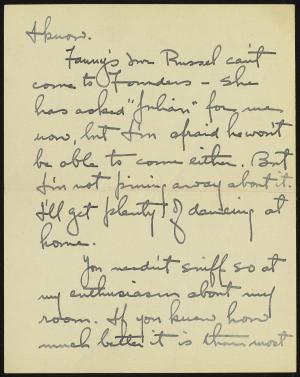 I know.
Fanny's Russel can't
come to Founders – She
has asked "Julian" for me
now, but I'm afraid he won't
be able to come either. But
I'm not pining away about it.
I'll get plenty of dancing at
home.
You needn't sniff so at
my enthusiasm about my
room. If you knew how
much better it is than most